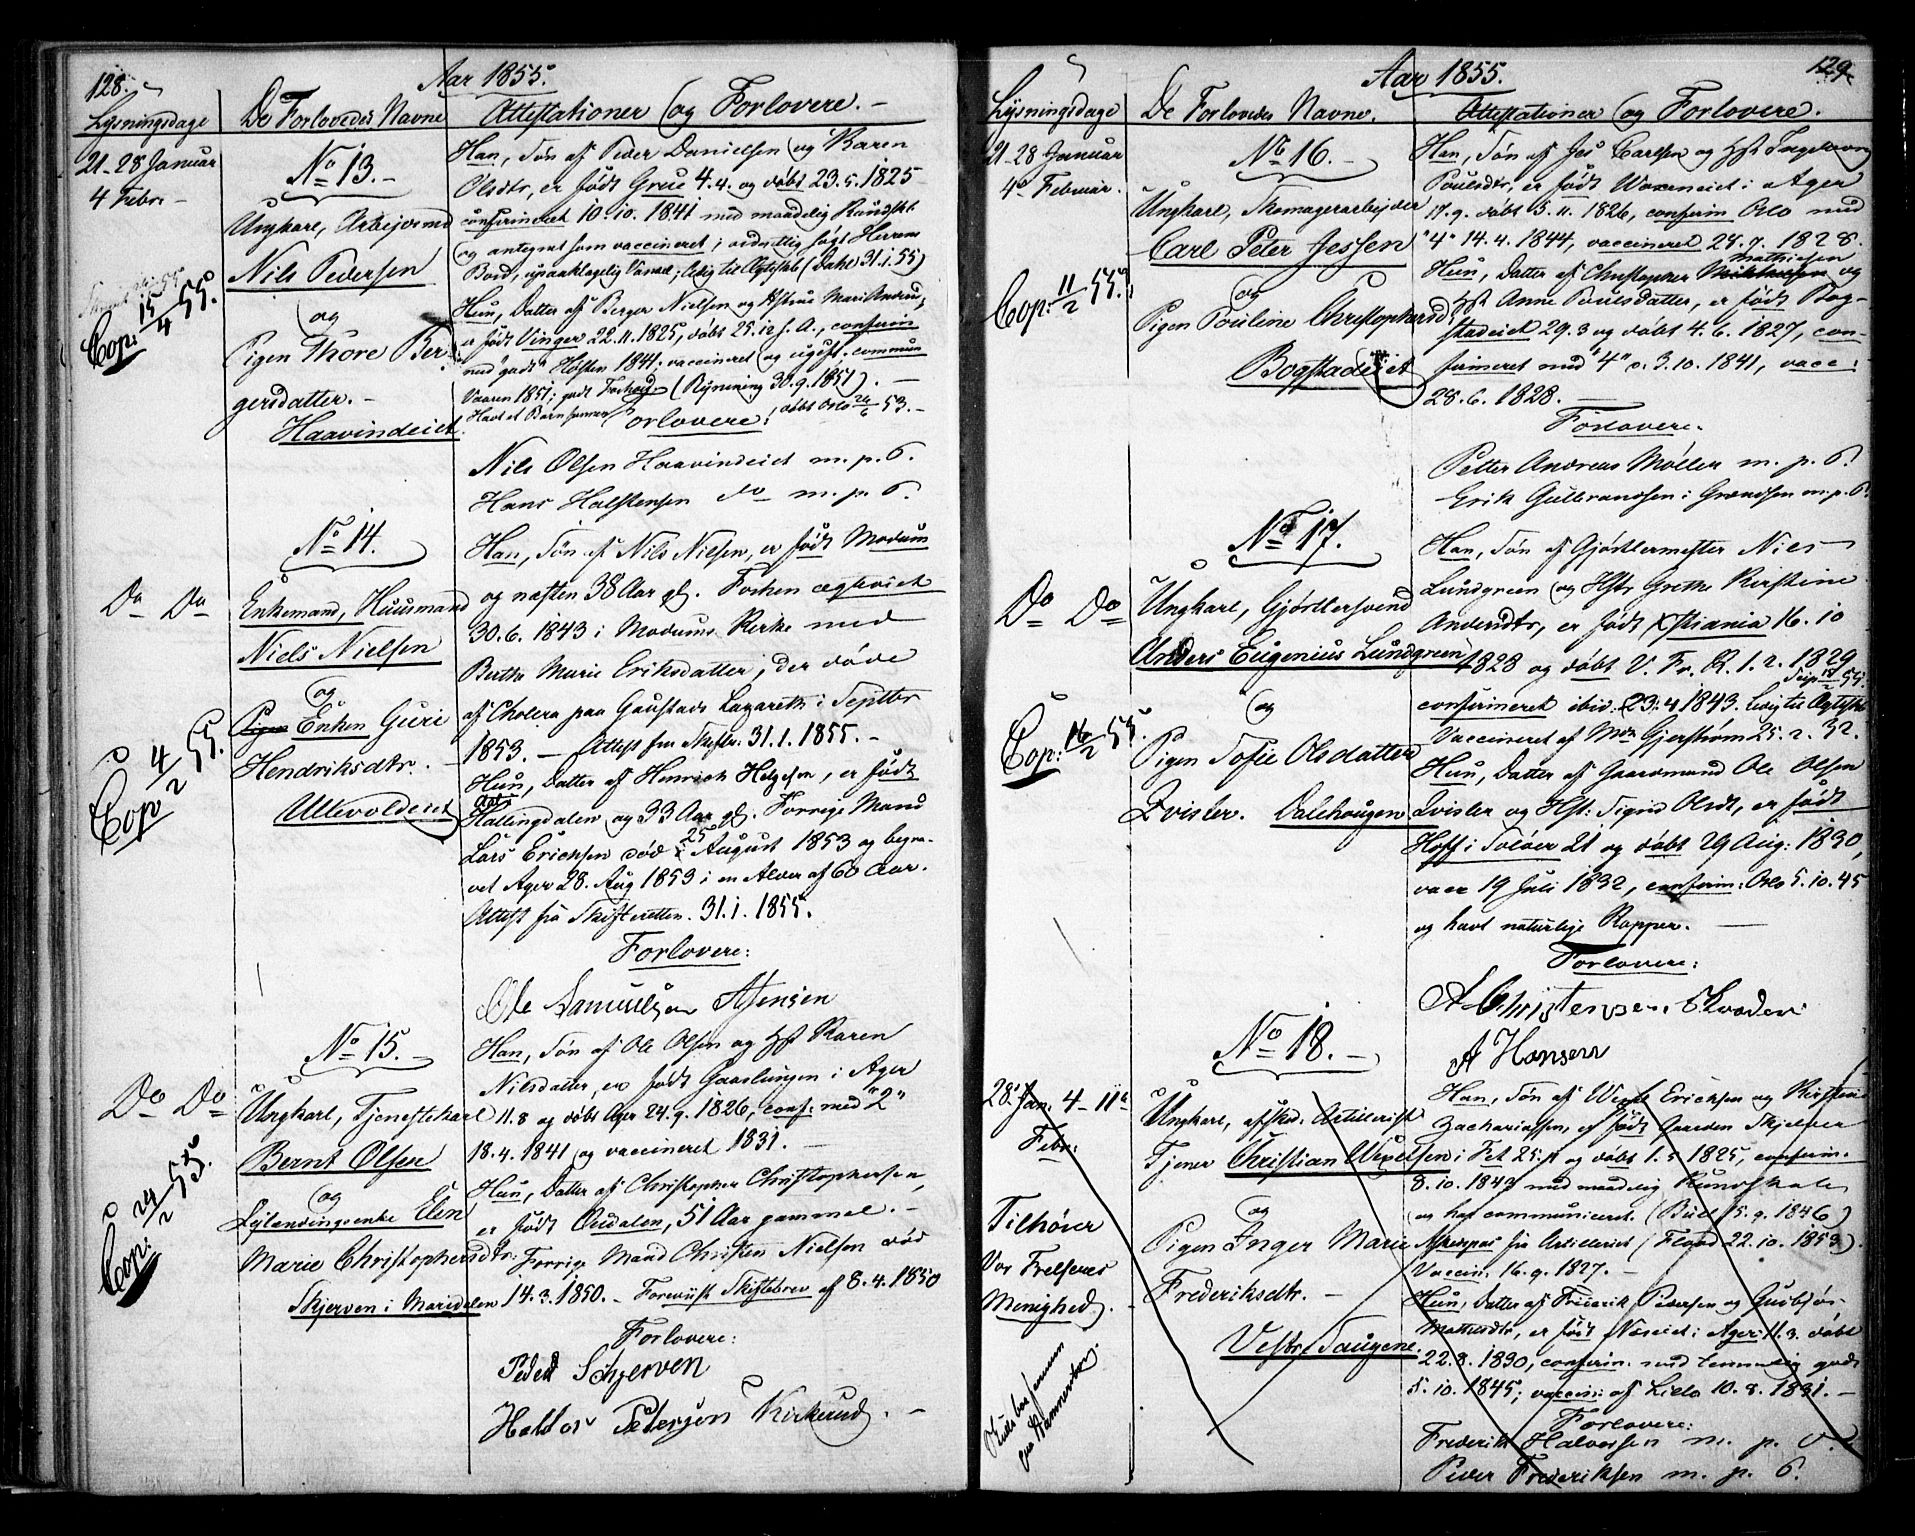 128.
Aar 1855.
Lysningsdage
De Forlovedes Navne
Attestationer og Forlovere. -
21-28 Januar
4 Febr. -
No 13. -
Ungkarl, Arbejdsmd
Nils Pedersen
og
Pigen Thore Ber-
gersdatter. -
Haavindeiet.
Cop: 15/4 55.
Han, Søn af Peder Danielsen og Karen
Olsdtr, er født Grue 4.4. og døbt 23.5. 1825
confirmeret 10.10. 1841 med maadelig Kundskb
og antegnet som vaccineret; ordentlig søgt Herrens
Bord, upaaklagelig Vandel; ledig til Ægteskb (Dahl 31.1.55)
Hun, Datter af Berger Nielsen og Hstrue Mari Andersd;
er født Vinger 22.11.1825, døbt 25.12 s. A., confirm
med "godt" Høsten 1841; vaccineret og egeft. commun
Vaaren 1851; godt Forhold (Rynning 30.9.1851). -
Havt et Barn sammen døbt Oslo 24/6 53. -
Forlovere:
Nils Olsen Haavindeiet m. p. P.
Hans Halstensen do m. p. P.
No 14.
Do Do
Enkemand, Huusmand
Niels Nielsen
og
Pigen Enken Guri
Hendriksdtr. -
Ullevoldeiet
Cop 4/2 55.
Han, Søn af Nils Nielsen, er født Modum
og næsten 38 Aar gl. Forhen ægteviet
30.6. 1843 i Modums Kirke med
Berthe Marie Eriksdatter, der døde
af Cholera paa Gaustads Lazareth i Septbr
1853. - Attest fra Skiftr: 31.1.1855. -
Hun, Datter af Henrich Helgesen, er født
Aals
Hallingdalen og 33 Aar gl. Forrige Mand
Lars Ericksen død 25 August 1853 og begra-
vet Ager 28. Aug 1853 i en Alder af 60 Aar.
Attest fra Skifteretten. 31.1. 1855.
Forlovere:
Ole Samuelsen A Jensen
No 15. -
Do Do
Ungkarl, Tjenestekarl
Bernt Olsen
og
Leilændingsenke Elen
Marie Christophersdtr:
Skjerven i Maridalen
Cop: 24/2 55.
Han, Søn af Ole Olsen og Hst Karen
Nilsdatter, er født Gaaslungen i Ager
11.8 og døbt Ager 24.9. 1826, conf: med "2"
18.4. 1841 og vaccineret 1831. -
Hun, Datter af Christopher Christophersen,
er født Ourdalen, 51 Aar gammel. -
Forrige Mand Christen Nielsen død
14.3. 1850. - Foreviist Skiftebrev af 8.4.1850
Forlovere:
Peder Schjerven
Haldor Petersøn Kirkerud. -
129.
Aar 1855.
Lysningsdage
De Forlovedes Navne.
Attestationer og Forlovere.
21-28 Januar
4de Februar.
No 16. -
Ungkarl, Skomagerarbejder
Carl Peter Jessen
og
Pigen Pouline Christophersd:
Bogstadeiet
Cop: 11/2 55.
Han, Søn af Jes Carlsen og Hst Ingeborg
Poulsdtr, er født Woxeneiet i Ager
17.9. døbt 5.11. 1826, confirm Oslo med
"4" 14.4. 1844, vaccineret 27.7. 1828.
Mathiesen
Hun, Datter af Christopher og
Hst Anne Poulsdatter, er født Bog-
stadeiet 29.3 og døbt 4.6. 1827, con-
firmeret med "4" d. 3.10. 1841, vacc:
28.6. 1828. -
Forlovere.
Petter Andreas Møller m. p. P.
Erik Gulbrandsen i Grændsen m. p. P.
No 17.
Do Do
Ungkarl, Gjørtlersvend
Anders Eugenius Lundgreen
og
Pigen Sofie Olsdatter
Qvisler. Dalehougen
Cop: 16/2 55.
Han, Søn af Gjørtlermester Niels
Lundgreen og Hstr Grethe Kirstine
Andersdtr, er født Xstiania 16.10
1828 og døbt V. Fr. K. 1.2. 1829
confirmeret ibid: 23.4 1843. ledig til Ægteskb
Vaccineret af Mdm Gjerstrøm 25.2. 32.
Hun, Datter af Gaardmand Ole Olsen
Qvisler og Hst: Sigrid Olsdt, er født
Hoff i Soløer 21 og døbt 29 Aug: 1830,
vacc 19 Juli 1832, confirm: Oslo 5.10. 45
og havt naturlige Kopper. -
Forlovere:
A Christensen Skræder
A Hansen
No 18. -
28. Jan. 4-11te
Febr:
Tilhører
Vor Frelsers
Menighed.
Ungkarl, afsked. Artillerist
Tjener Christian Wexelsen
og
Pigen Inger Marie
Frederiksdtr. -
Vestre Saugene.
Han, Søn af Wexel Ericksen og Kirstine
Zachariassen, er født Gaarden Skjelver
i Fet 25. og døbt 1.5 1825, confirm.
8.10. 1843 med maadelig Kundskab
og har communiceret. (Bull 15.9. 1846)
Afskedspas fra Artilleriet (Flood 22.10. 1853).
Vaccin. 16.9. 1827. -
Hun, Datter af Friderik Pedersen og Gudbjør
Mathisdtr, er født Næseiet i Ager 11.3. døbt
22.8. 1830, confirm. med temmelig godt
5.10. 1845; vaccin: af Lielo 10.8. 1831. -
Forlovere:
Frederik Halvorsen m. p. P.
Peder Frederiksen m. p. P.